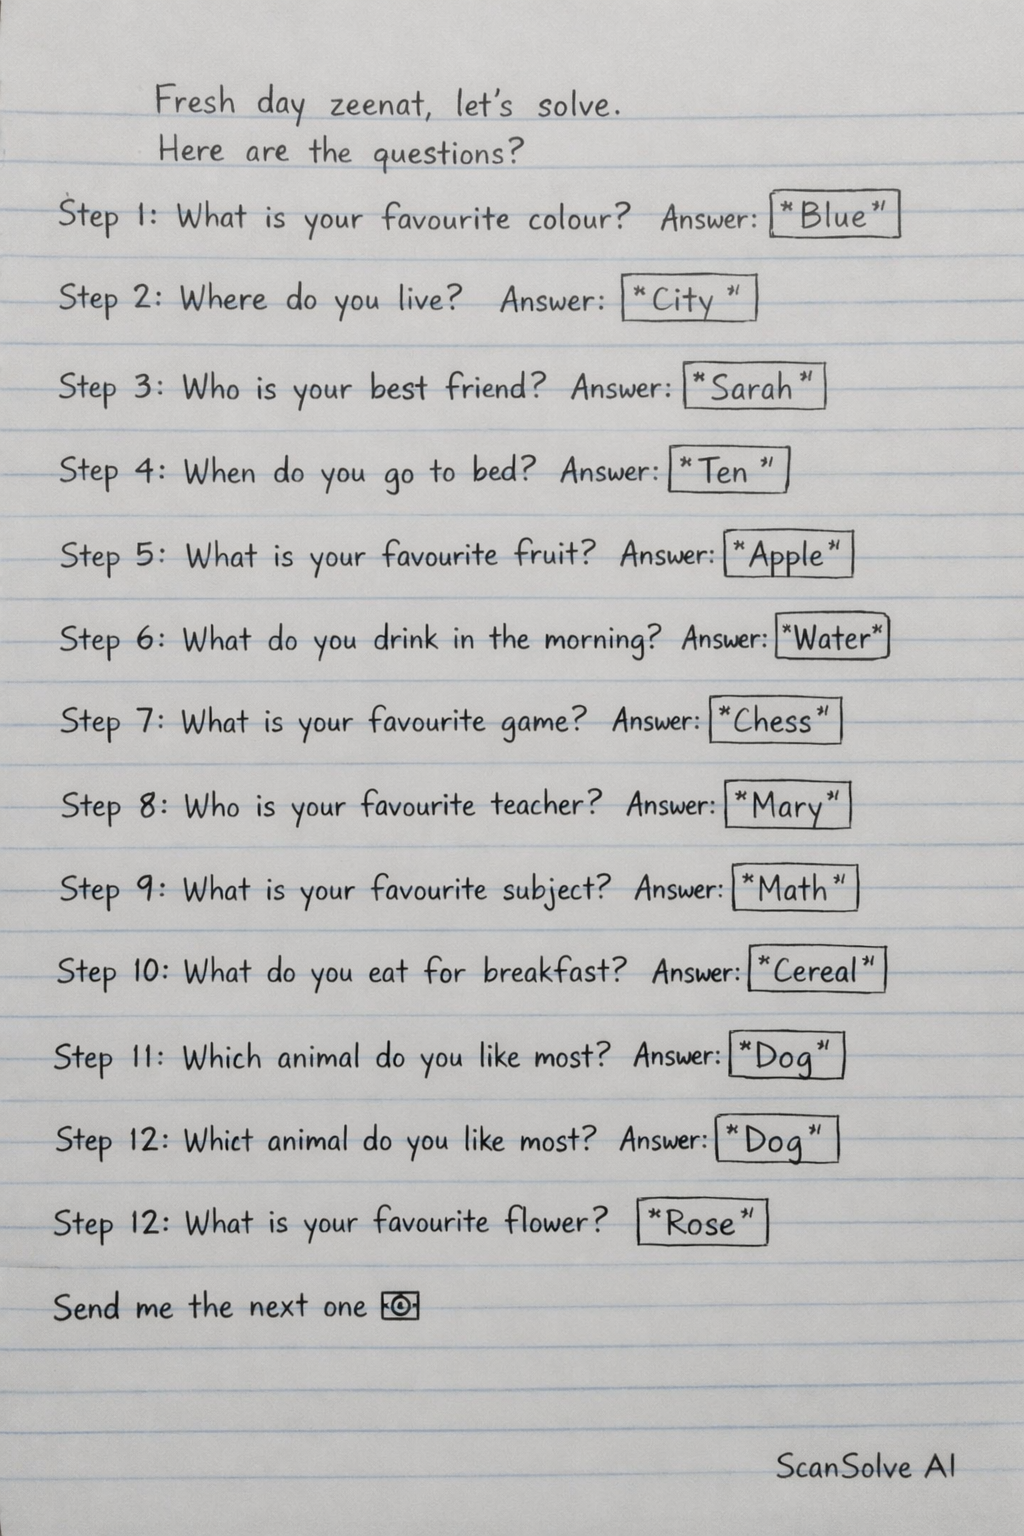 Fresh day zeenat, let's solve.
Here are the questions?
Step 1: What is your favourite colour? Answer: *Blue*
Step 2: Where do you live? Answer: *City *
Step 3: Who is your best friend? Answer: *Sarah*
Step 4: When do you go to bed? Answer: *Ten *
Step 5: What is your favourite fruit? Answer: *Apple*
Step 6: What do you drink in the morning? Answer: *Water*
Step 7: What is your favourite game? Answer: *Chess*
Step 8: Who is your favourite teacher? Answer: *Mary*
Step 9: What is your favourite subject? Answer: *Math*
Step 10: What do you eat for breakfast? Answer: *Cereal*
Step 11: Which animal do you like most? Answer: *Dog*
Step 12: Whict animal do you like most? Answer: *Dog*
Step 12: What is your favourite flower? *Rose*
Send me the next one
ScanSolve AI